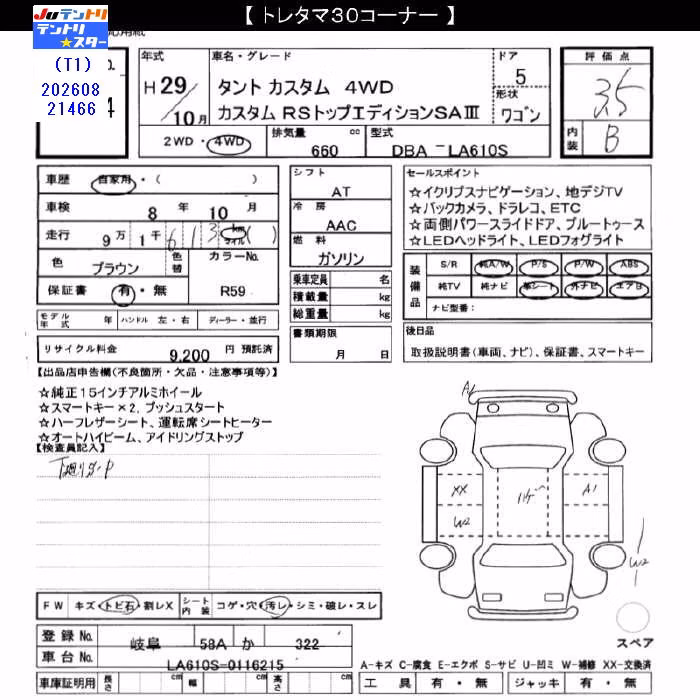 【 トレタマ30コーナー 】
JUテントリ
テントリ
★スター
(T1)
202608
21466
4
年式
H 29/10月
車名・グレード
タント カスタム 4WD
カスタム RSトップエディションSAⅢ
ドア
5
形状
ワゴン
評価点
3.5
内装
B
2WD・4WD
排気量 660 cc
型式 DBA - LA610S
車歴 自家用・( )
車検 8 年 10 月
走行 9万 1千 613 km マイル ( )
色 ブラウン
色替
カラーNo. R59
保証書 有・無
シフト
AT
冷房
AAC
燃料
ガソリン
乗車定員 名
積載量 kg
総重量 kg
書類期限
月 日
セールスポイント
☆イクリプスナビゲーション、地デジTV
☆バックカメラ、ドラレコ、ETC
☆両側パワースライドドア、ブルートゥース
☆LEDヘッドライト、LEDフォグライト
装備品
S/R 純A/W P/S P/W ABS
純TV 純ナビ 革シート 外ナビ エアB
ナビ型番：
モデル年式 年 ハンドル 左・右 ディーラー・並行
リサイクル料金 9,200 円 預託済
後日品
取扱説明書(車両、ナビ)、保証書、スマートキー
【出品店申告欄(不良箇所・欠品・注意事項等)】
☆純正15インチアルミホイール
☆スマートキー×2、プッシュスタート
☆ハーフレザーシート、運転席シートヒーター
☆オートハイビーム、アイドリングストップ
【検査員記入】
A1
XX
W2
A1
W2
FW キズ・トビ石・割レX
シート内装 コゲ・穴・汚レ・シミ・破レ・スレ
登録No. 岐阜 58A か 322
車台No. LA610S-0116215
スペア
A-キズ C-腐食 E-エクボ S-サビ U-凹ミ W-補修 XX-交換済
車庫証明用 長さ cm 幅 cm 高さ cm
工具 有・無 ジャッキ 有・無